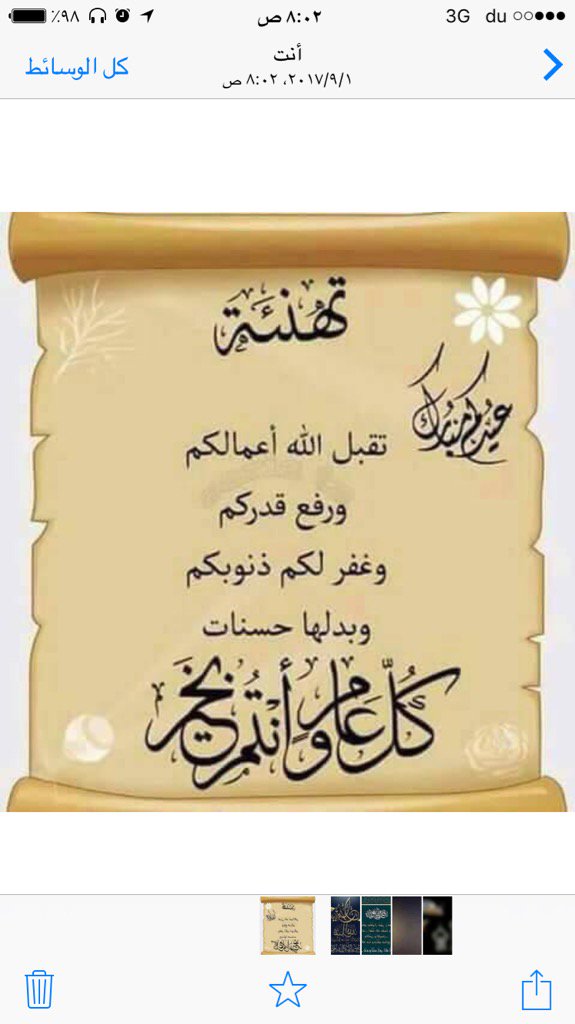 ٪٩٨
٨:٠٢ ص
3G du
كل الوسائط
أنت
٢٠١٧/٩/١، ٨:٠٢ ص
تهنئة
عيدكم مبارك
تقبل الله أعمالكم
ورفع قدركم
وغفر لكم ذنوبكم
وبدلها حسنات
كُلّ عَامٍ وأَنْتُم بخَيْر